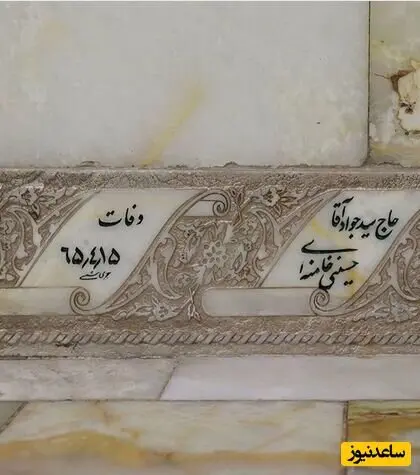 حاج سید جواد آقا
حسینی خامنه ای
وفات
۶۵٫۴٫۱۵
هجری شمسی
ساعدنیوز